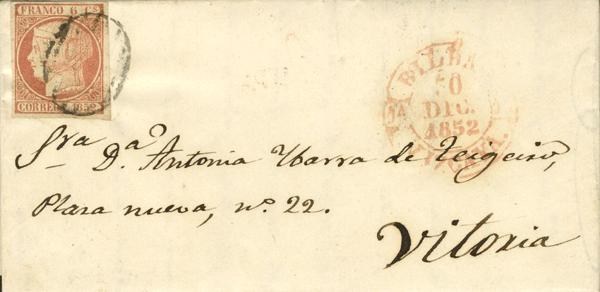 FRANCO 6 Cs
CORREOS 1852
BILBAO
DIC.
1852
Sra Da. Antonia Ybarra de Teigeiro,
Plasa nueva, no. 22.
Vitoria